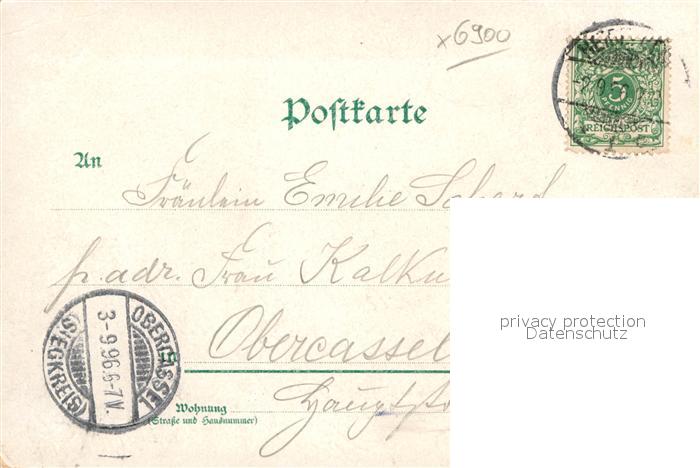 x6900
5
PFENNIG
REICHSPOST
Postkarte
An
Fräulein Emilie
p. adr. Frau Kalku
Obercassel
in
Wohnung
(Straße und Hausnummer)
OBERCASSEL
(SIEGKREIS)
3-9.96.6-7V.
privacy protection
Datenschutz